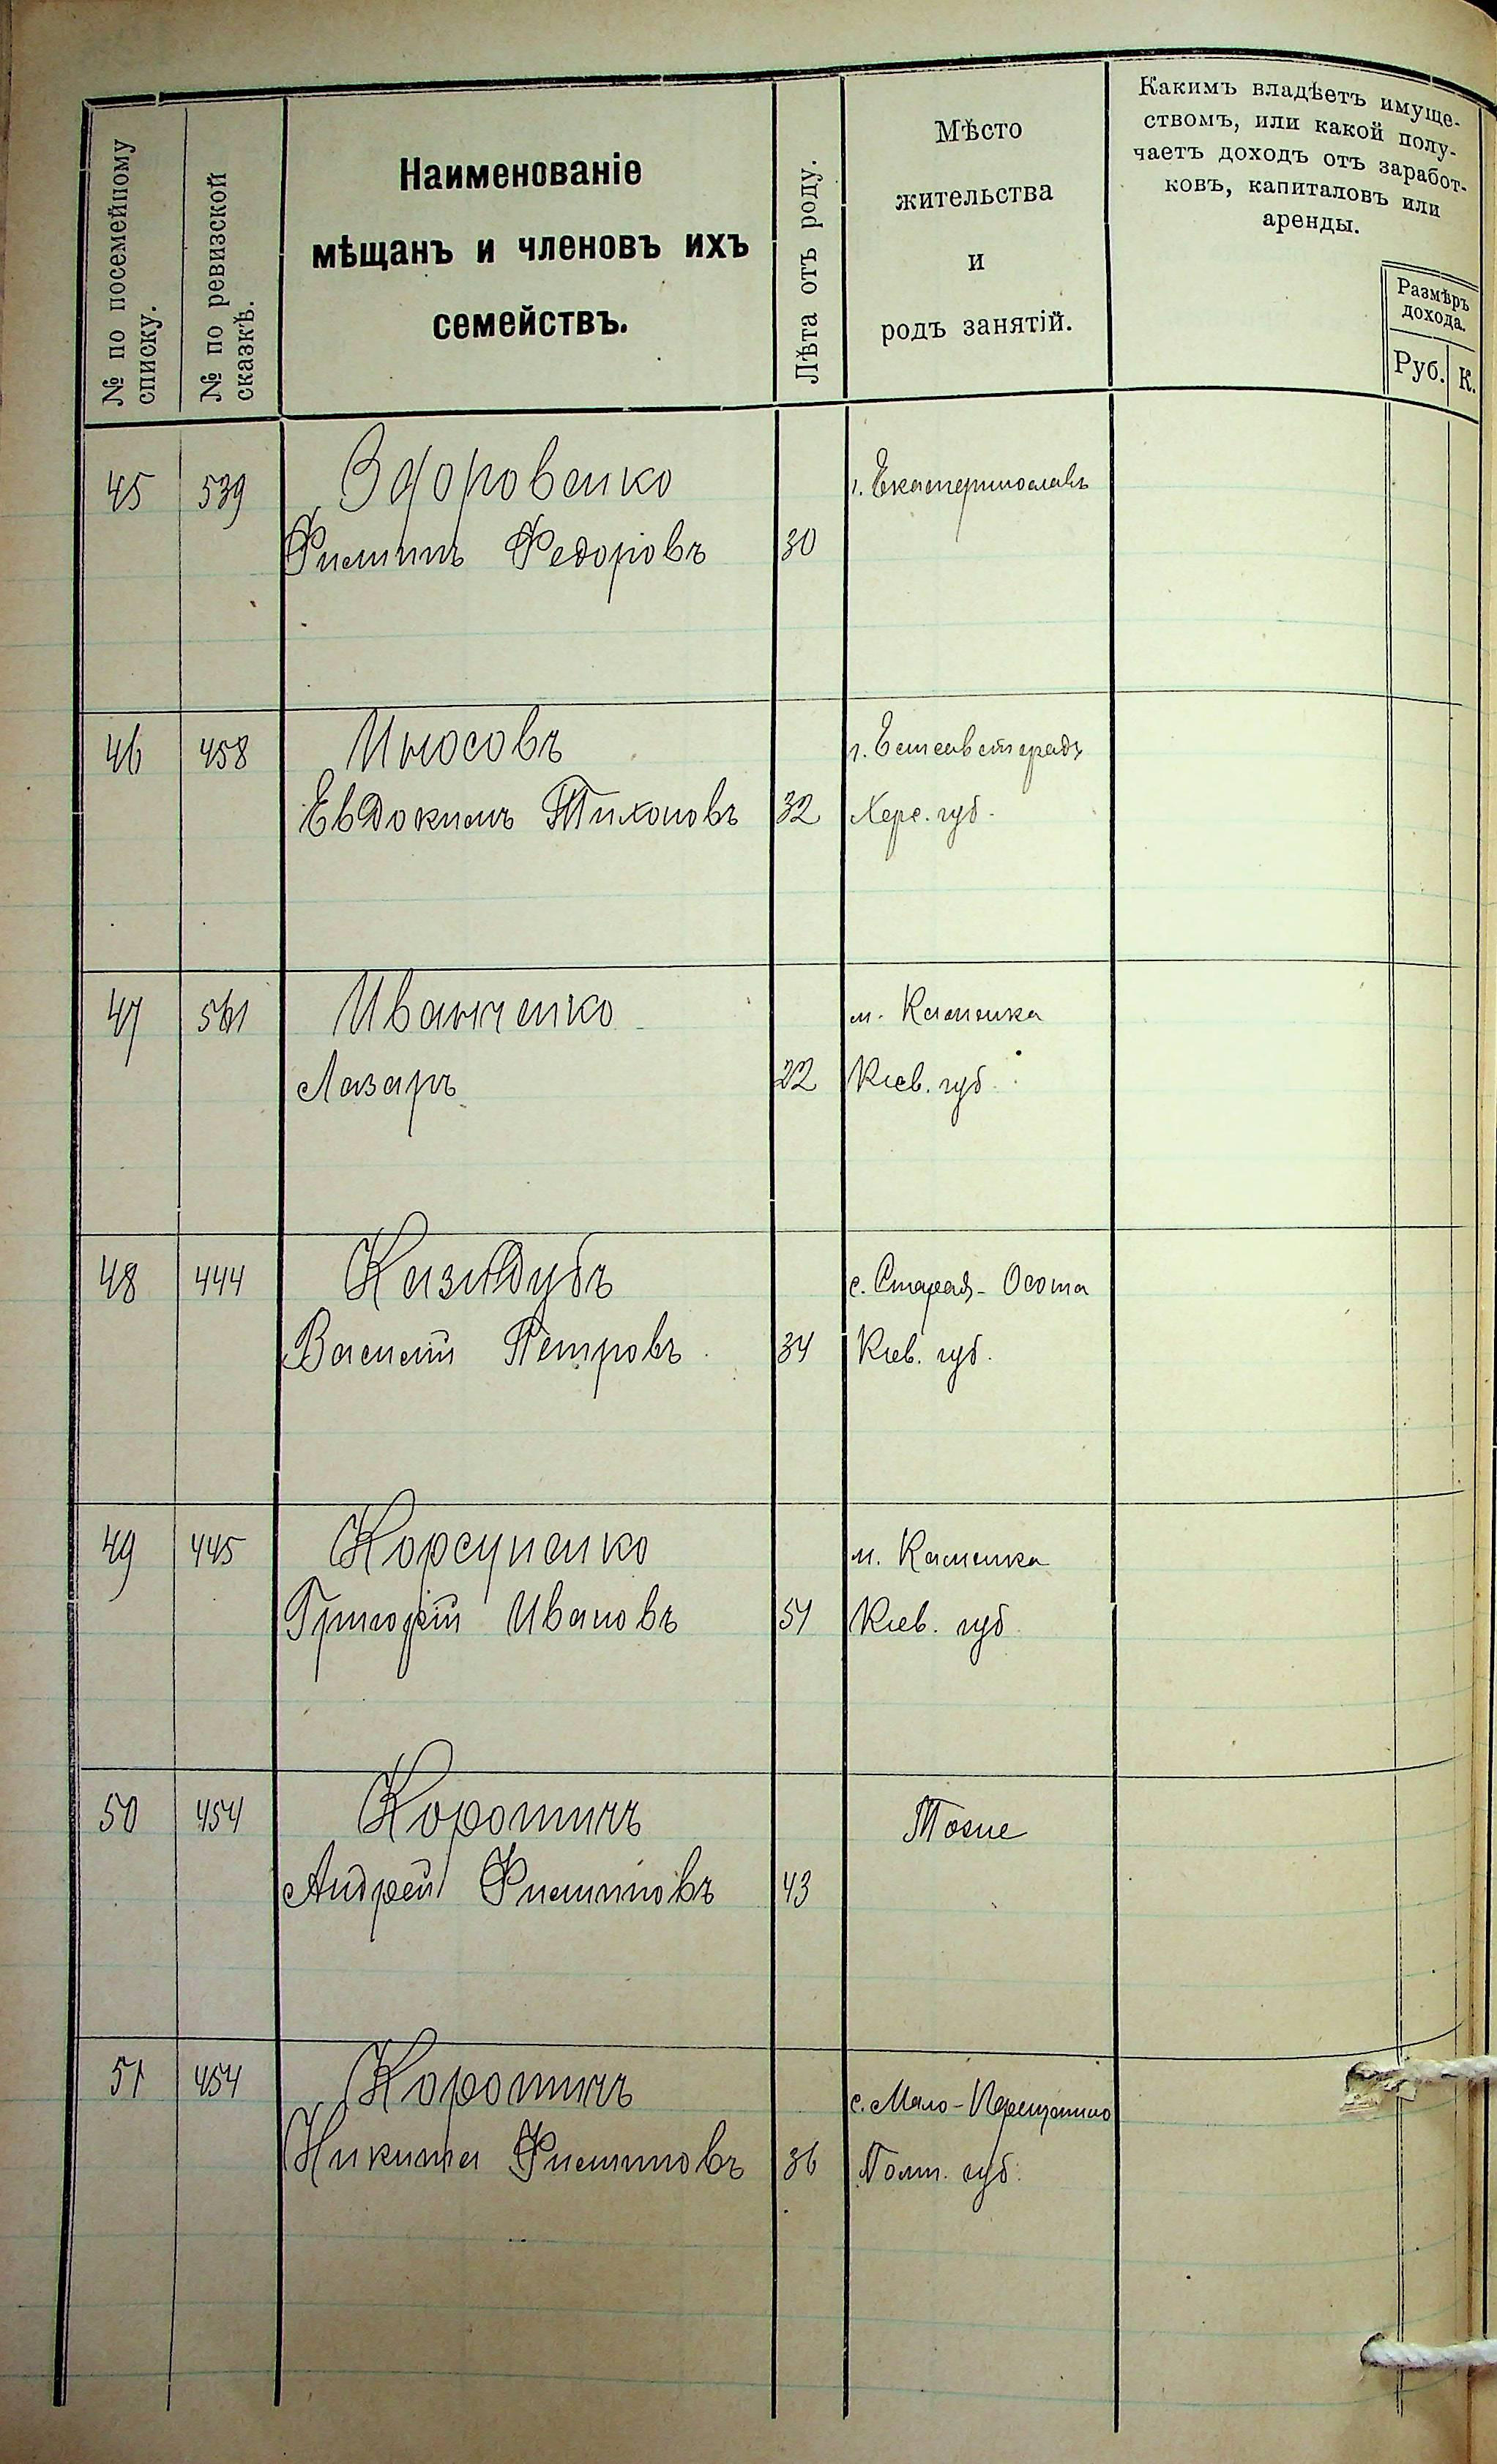 № по посемейному
списку.
№ по ревизской
сказкѣ.
Наименованіе
мѣщанъ и членовъ ихъ
семействъ.
Лѣта отъ роду.
Мѣсто
жительства
и
родъ занятій.
Какимъ владѣетъ имуще-
ствомъ, или какой полу-
чаетъ доходъ отъ заработ-
ковъ, капиталовъ или
аренды.
Размѣръ
дохода.
Руб. К.
45 539 Здоровенко г. Екатеринославъ
Филиппъ Федоровъ 30
46 458 Иносовъ г. Елисаветградъ
Евдокимъ Тихоновъ 32 Херс. губ.
47 561 Иванченко м. Каменка
Лазаръ 22 Кіев. губ.
48 444 Казидубъ с. Старая-Осота
Василій Петровъ 34 Кіев. губ.
49 445 Корсуненко м. Каменка
Григорій Ивановъ 54 Кіев. губ
50 454 Коротичъ Тоже
Андрей Филипповъ 43
51 454 Коротичъ с. Мало-Перещепино
Никита Филипповъ 36 Полт. губ.